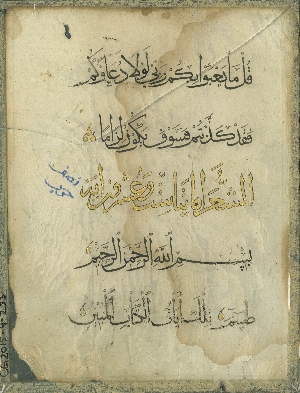 قل ما يعبؤا بكم ربي لولا دعاؤكم
فقد كذبتم فسوف يكون لزاما
الشعرا مايتا وست وعشرون اية
نصف حزب
بسم الله الرحمن الرحيم
طسم تلك ايات الكتاب المبين